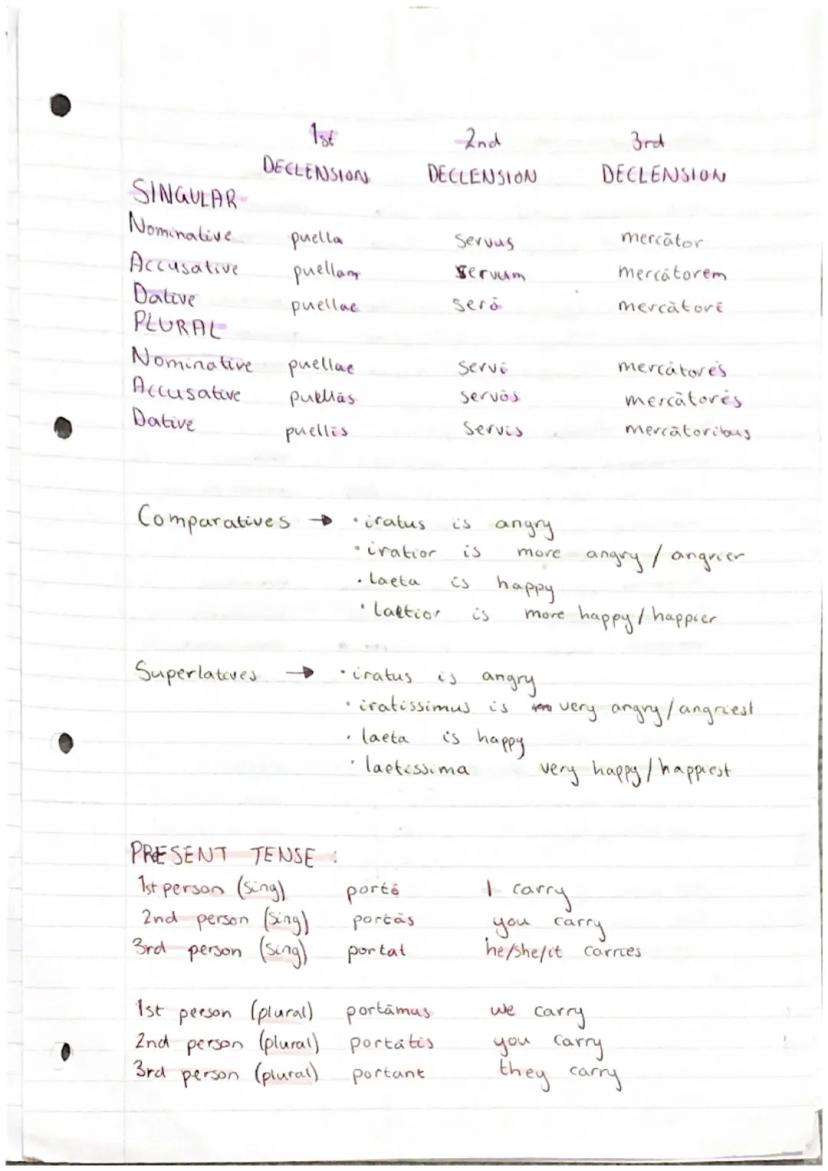 1st 2nd 3rd
DECLENSION DECLENSION DECLENSION
SINGULAR
Nominative puella servus mercātor
Accusative puellam servum mercātorem
Dative puellae serō mercātorī
PLURAL
Nominative puellae servī mercātorēs
Accusative puellās servōs mercātorēs
Dative puellīs servīs mercātoribus
Comparatives → · iratus is angry
· iratior is more angry / angrier
· laeta is happy
· laetior is more happy / happier
Superlatives → · iratus is angry
· iratissimus is very angry/angriest
· laeta is happy
· laetissima very happy/happiest
PRESENT TENSE :
1st person (sing) portō I carry
2nd person (sing) portās you carry
3rd person (sing) portat he/she/it carries
1st person (plural) portāmus we carry
2nd person (plural) portātis you carry
3rd person (plural) portant they carry